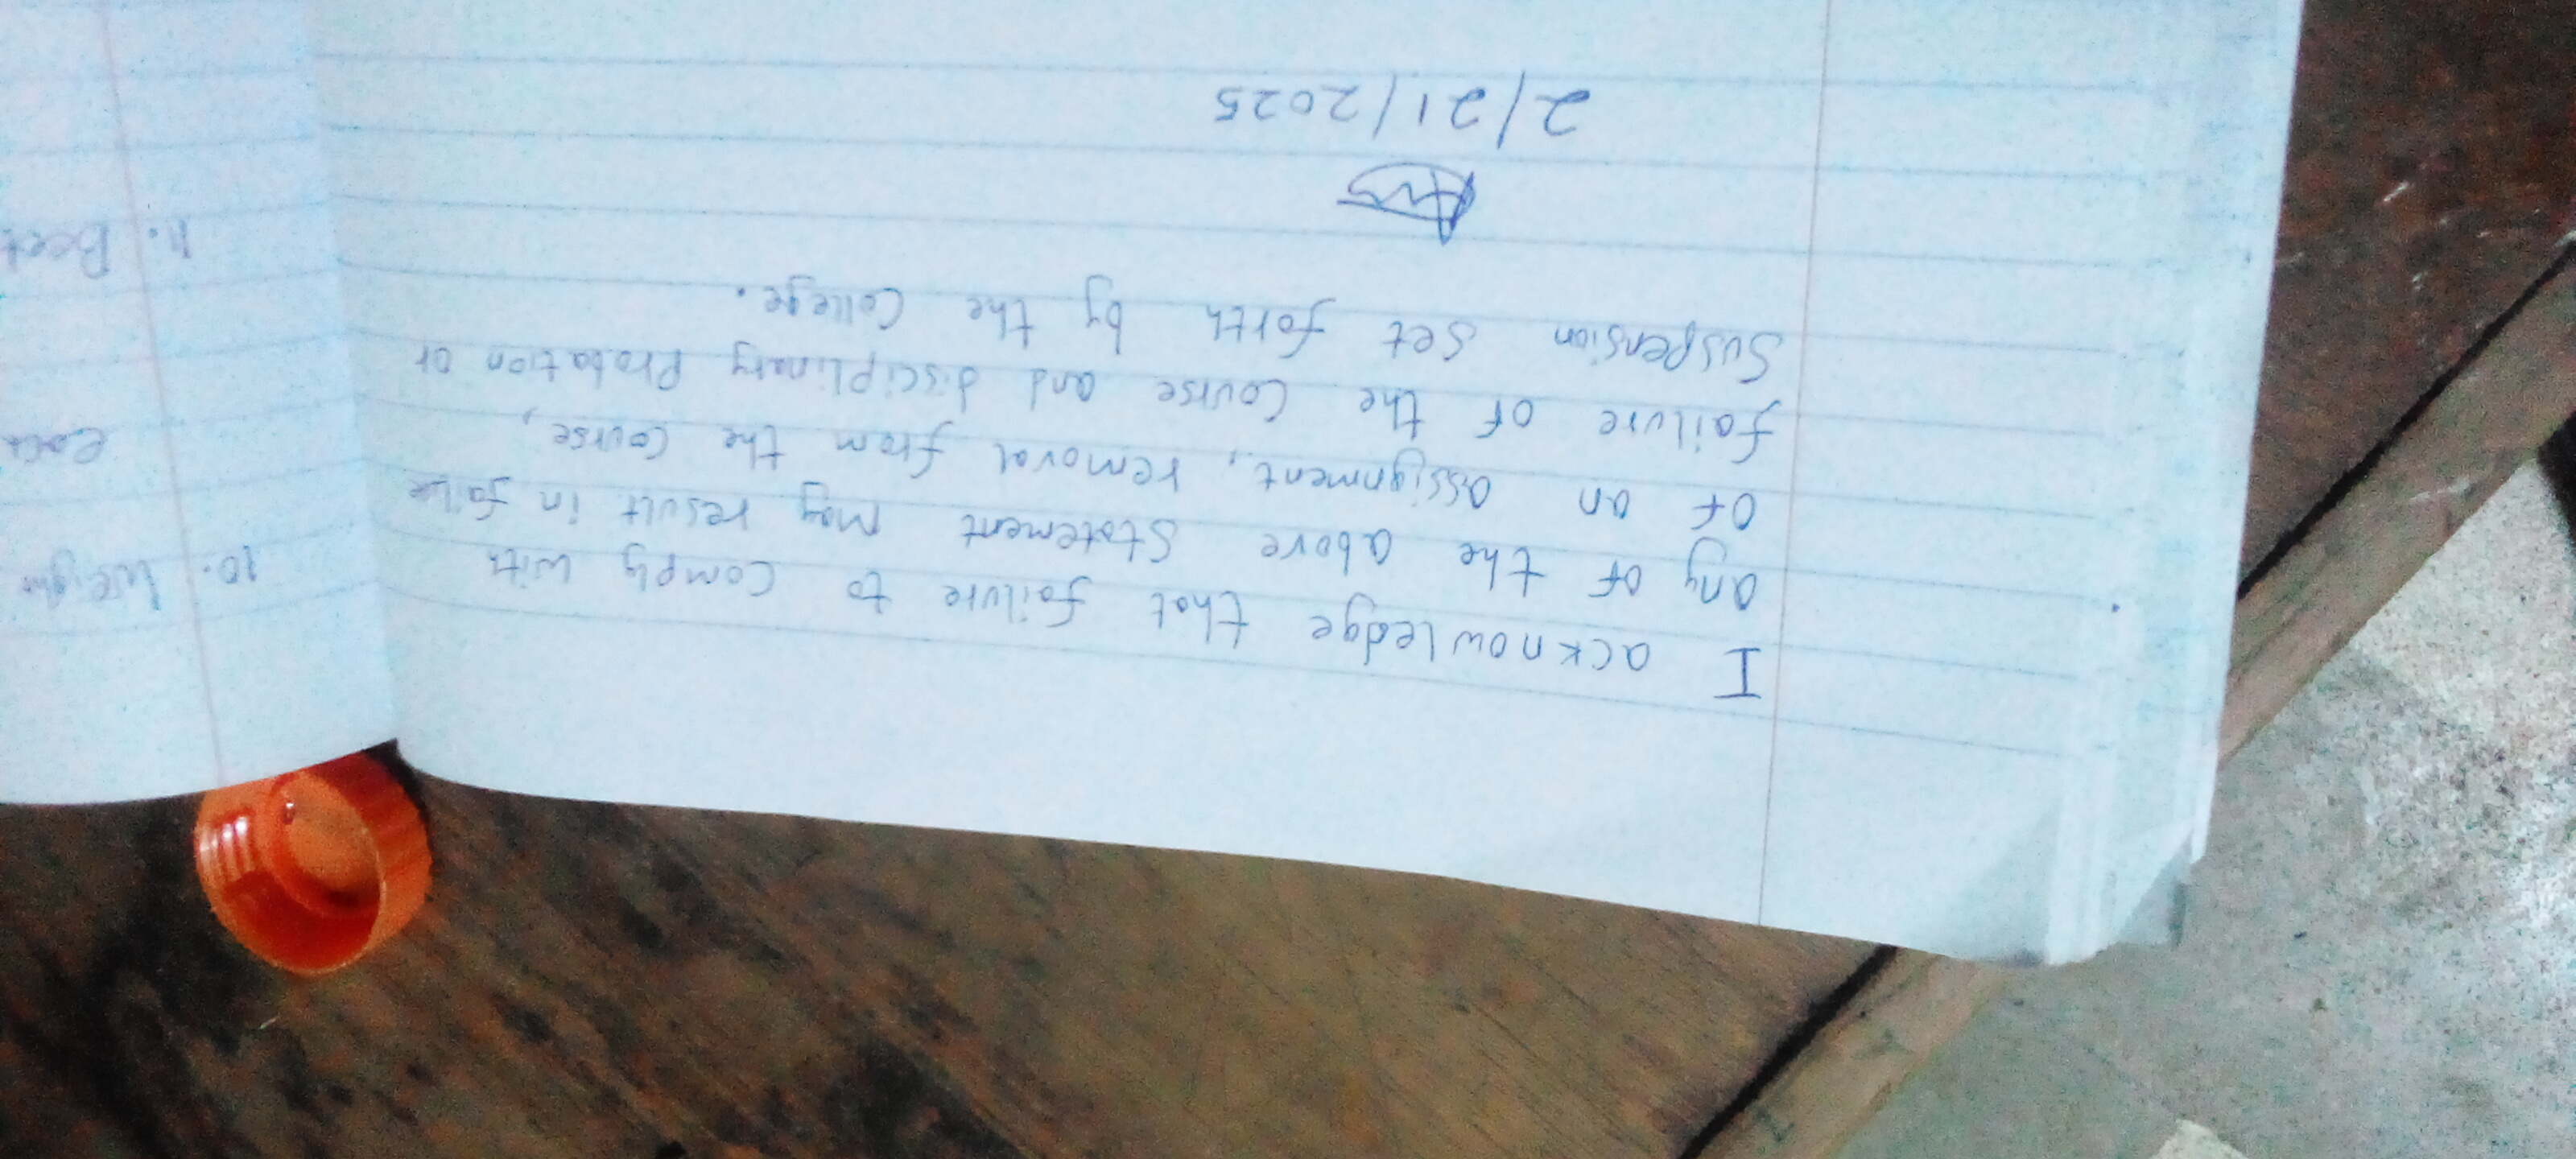 I acknowledge that failure to comply with
any of the above statement may result in failure
of an assignment, removal from the course,
failure of the course and disciplinary probation or
suspension set forth by the college.
2/21/2025
10. Weigh
each
11. Beet